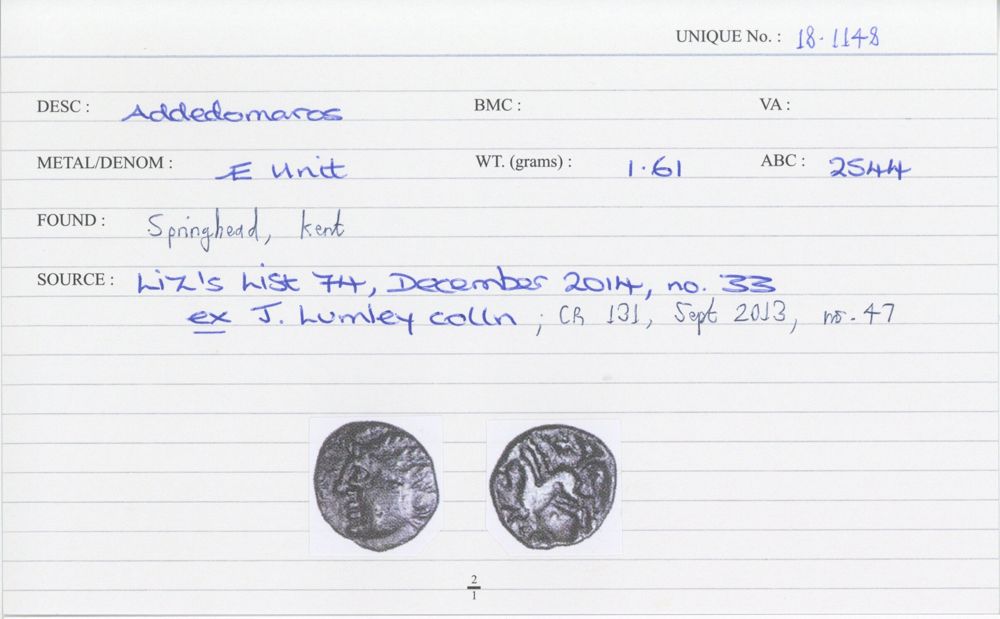 UNIQUE No. : 18-1148
DESC : Addedomaros BMC : VA :
METAL/DENOM : Æ Unit WT. (grams) : 1.61 ABC : 2544
FOUND : Springhead, Kent
SOURCE : Liz's List 74, December 2014, no. 33
ex J. Lumley colln ; CR 131, Sept 2013, no. 47
2
1